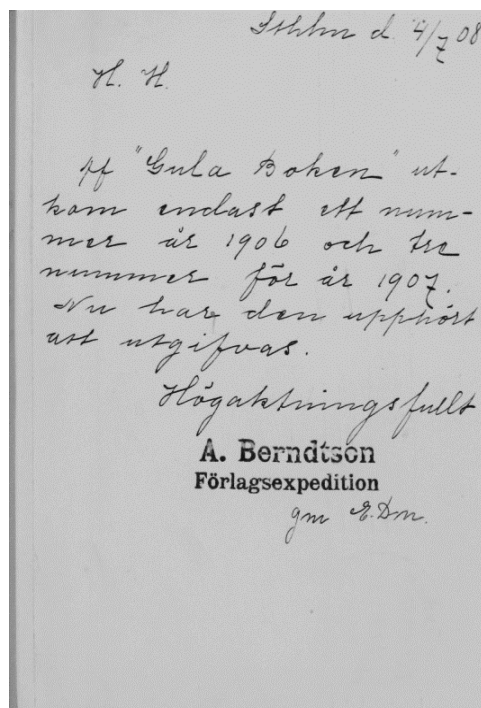 Sthlm d. 4/7 08
H. H.
Af "Gula Boken" ut-
kom endast ett num-
mer år 1906 och tre
nummer för år 1907.
Nu har den upphört
att utgifvas.
Högaktningsfullt
A. Berndtson
Förlagsexpedition
gm E.Dm.